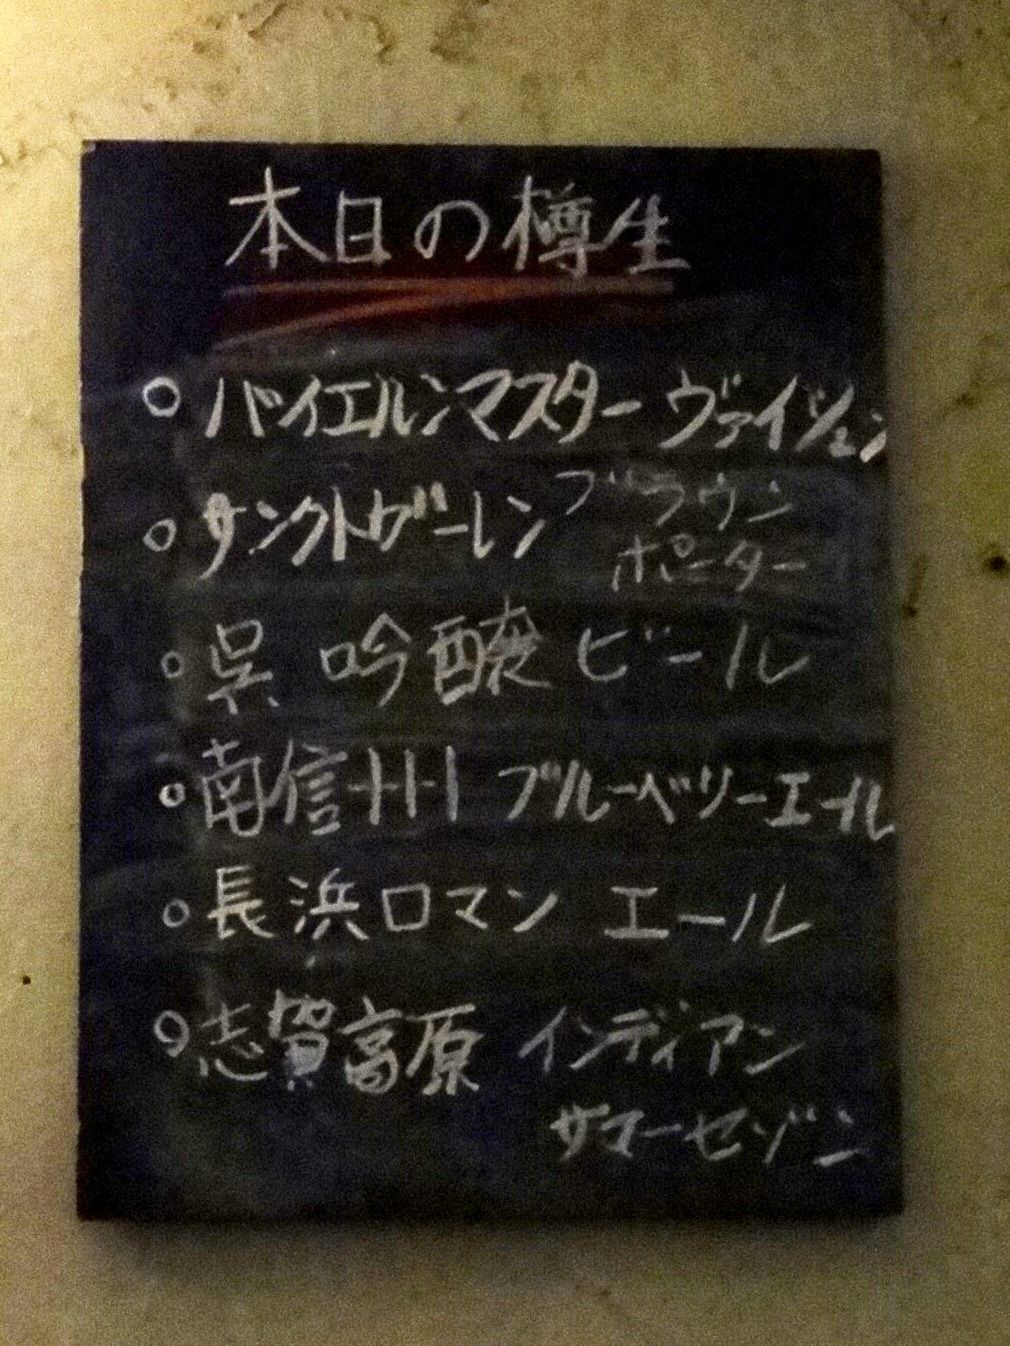 本日の樽生
○ バイエルンマスター ヴァイツェン
○ サンクトガーレン ブラウン
ポーター
○ 呉 吟醸 ビール
○ 南信州 ブルーベリーエール
○ 長浜ロマン エール
○ 志賀高原 インディアン
サマーセゾン